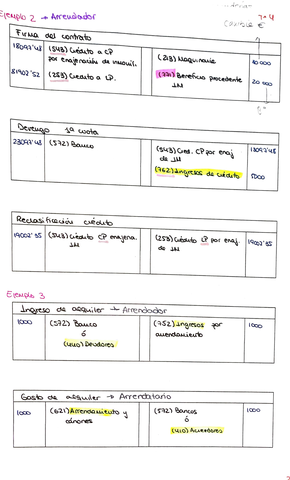 Ejemplo 2 → Arrendador
Firma del contrato
18097'48 (543) Crédito a CP por enajenación de inmovil.
81902'52 (253) Crédito a CP.
(213) Maquinaria 80000
(771) Beneficio procedente IM 20000
Devengo 1ª cuota
23097'48 (572) Banco
(543) Cred. CP por enaj de IM 18097'48
(762) Ingresos de crédito 5000
Reclasificación crédito
19002'35 (543) Crédito CP enajena. IM
(253) Crédito CP por enaj. de IM 19002'35
Ejemplo 3
Ingreso de alquiler → Arrendador
1000 (572) Banco
ó
(440) Deudores
(752) Ingresos por arrendamiento 1000
Gasto de alquiler → Arrendatario
1000 (621) Arrendamiento y cánones
(572) Bancos 1000
ó
(410) Acreedores